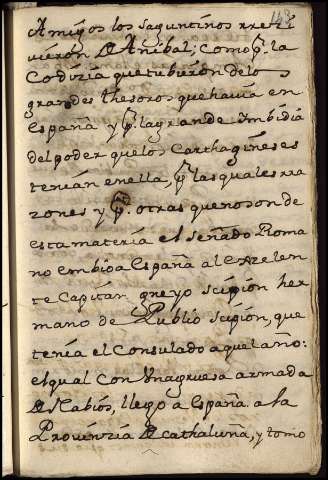 Amigos los saguntinos rreçi
vieron de Anibal; como p̃. la
Codiçia que tubieron de los
grandes thesoros que havia en
españa y p̃. la grande imbidia
del poder que los Carthagineses
tenian en ella, p̃ las quales rra
zones y p̃. otras que no son de
esta materia el señado Roma
no embio a españa al exelen
te Capitan gneyo sçipion her
mano de Publio sçipion, que
tenia el Consulado aquel año:
el qual con Vna gruesa armada
de Nabios, llego a españa a la
Provinzia de Cathaluña, y tomo